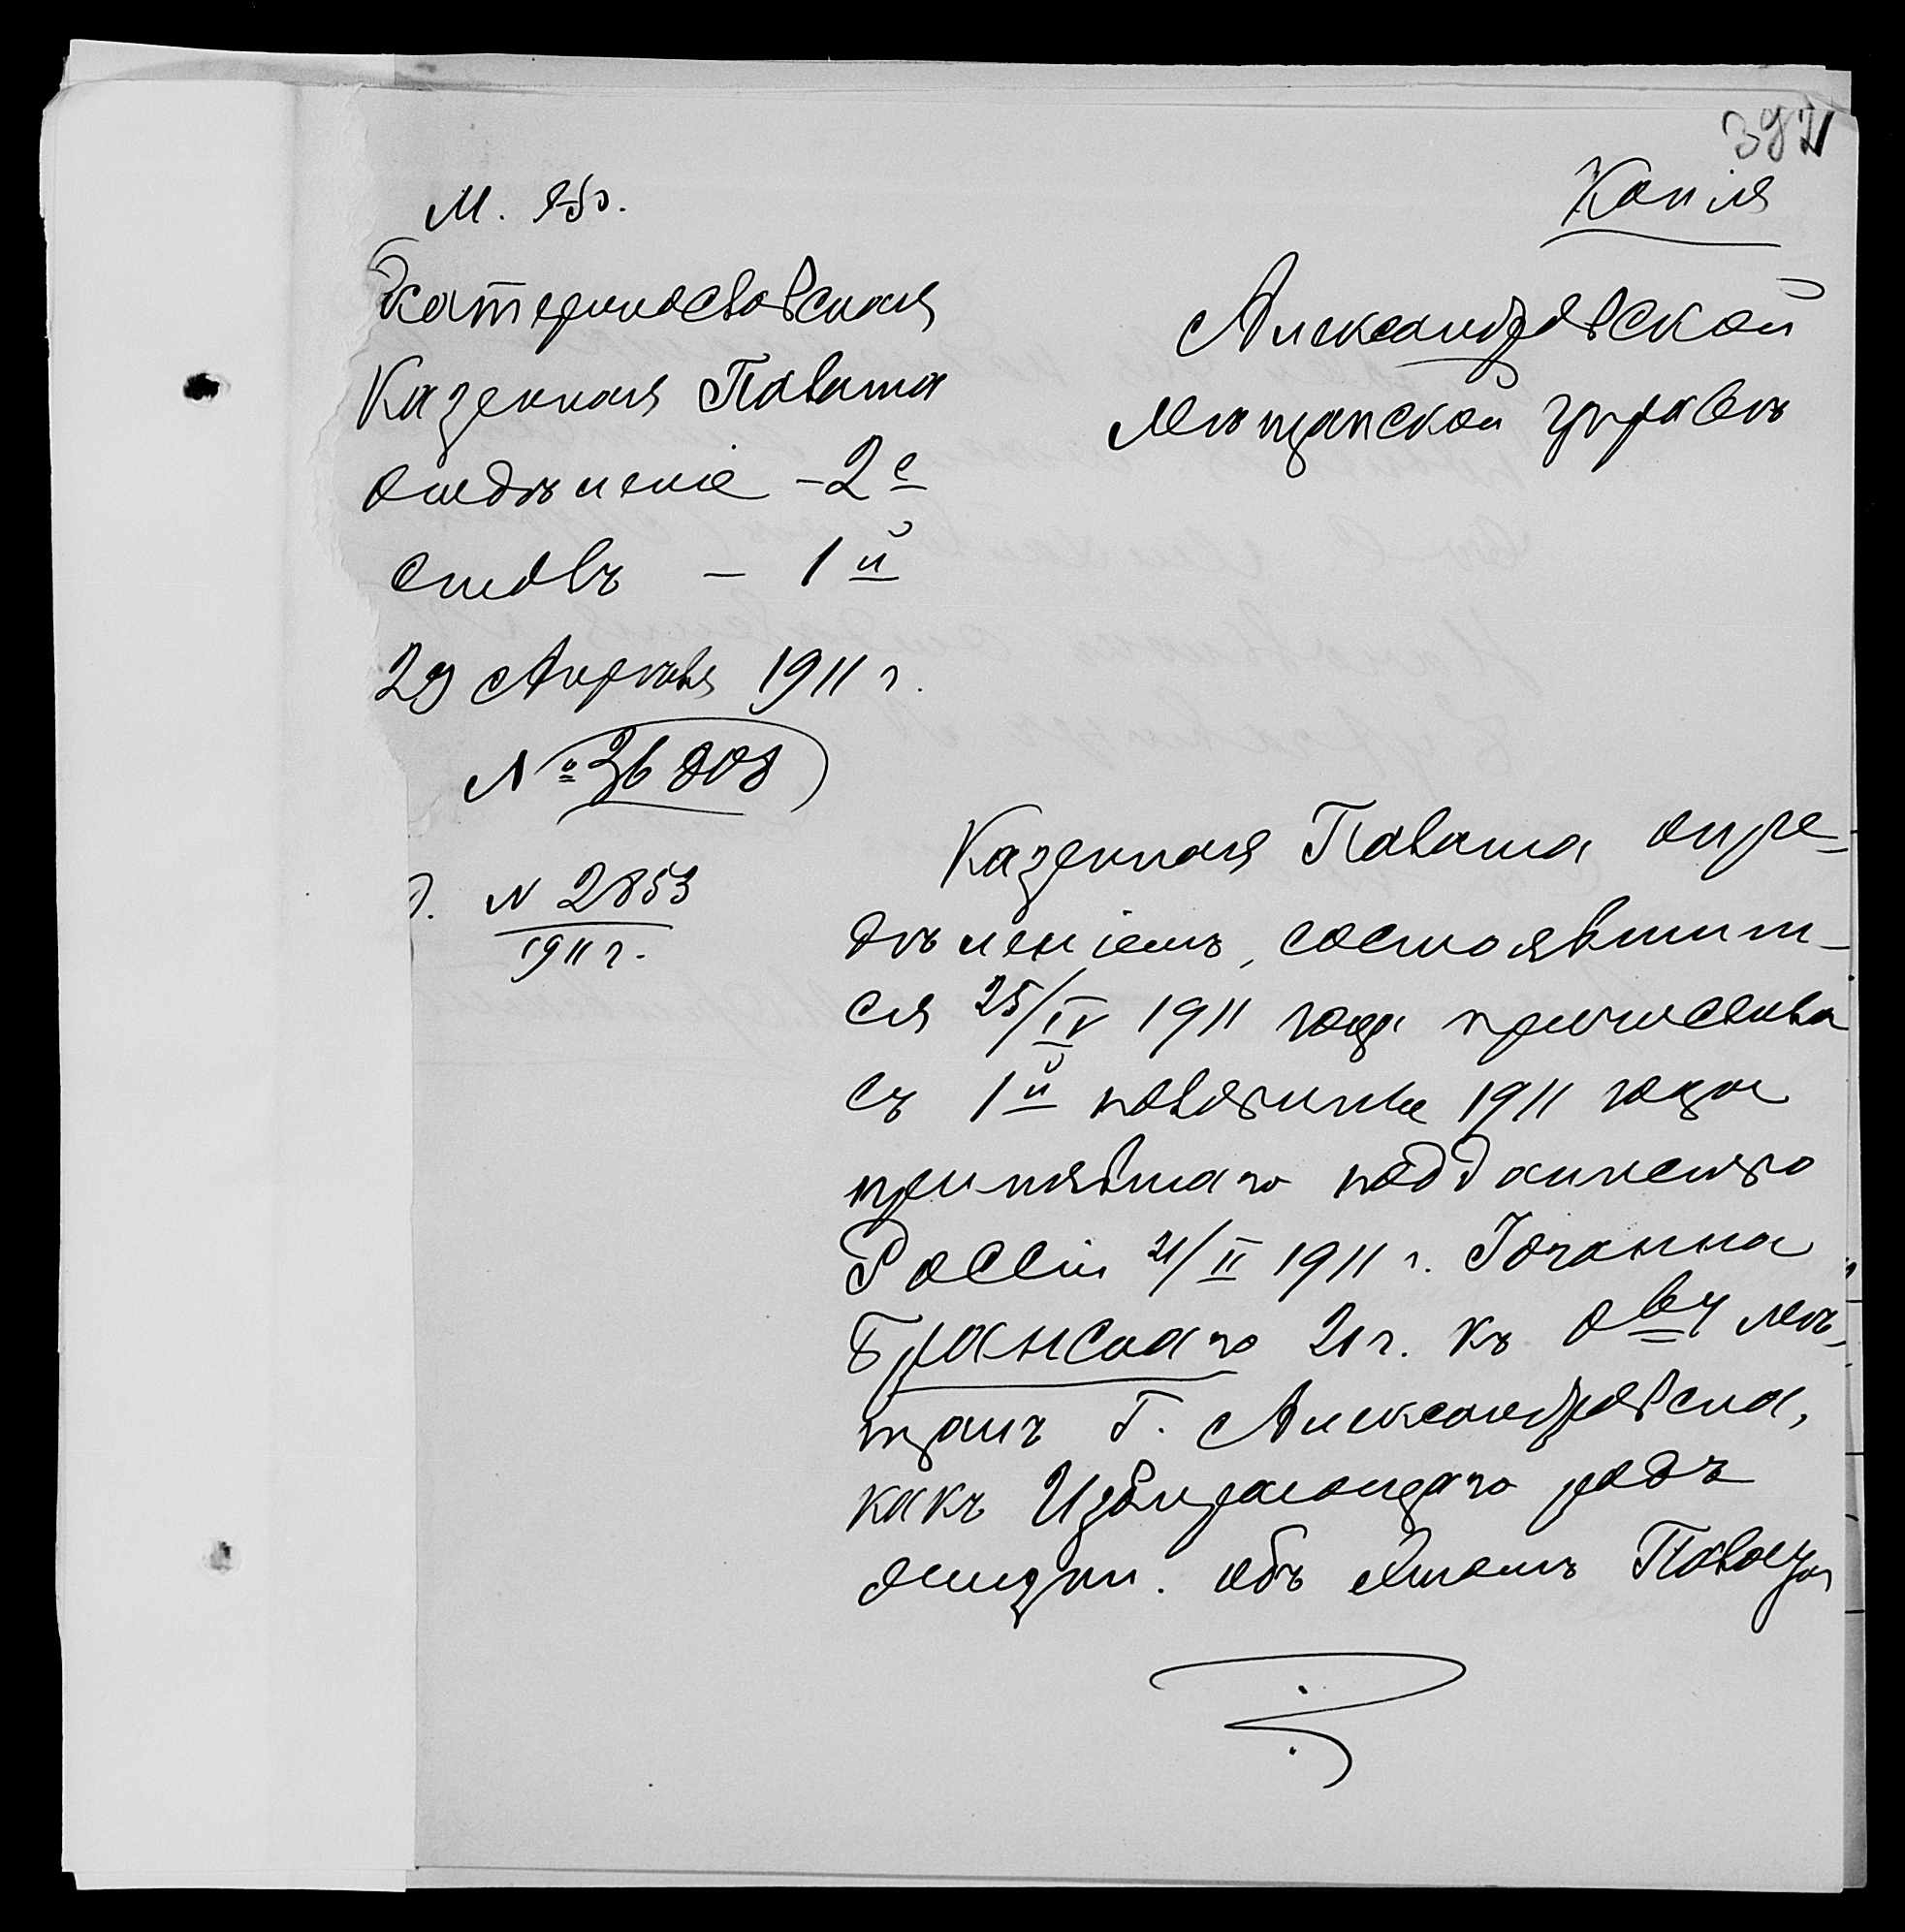 392
Копія
М. Ф.
Екатеринославская
Казенная Палата
отдѣленіе – 2е
столъ – 1й
29 Апрѣля 1911 г.
№ 36808
д. № 2853
1911 г.
Александровской
Мѣщанской управѣ
Казенная Палата опре-
дѣленіемъ, состоявшим-
ся 25/IV 1911 года причислила
съ 1й половины 1911 года
принявшаго подданство
Россіи 21/II 1911 г. Іоганна
Бранскаго 21 г. къ обву мѣ-
щанъ г. Александровска,
какъ избирающаго родъ
жизни. Объ этомъ Палата